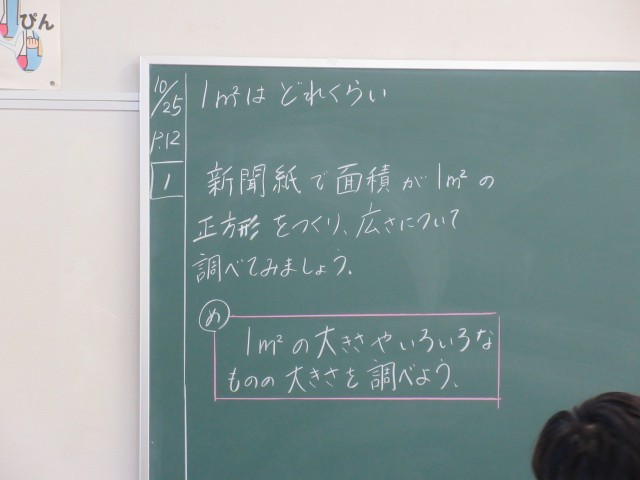 ぴん
10/25
P.12
1
1m²は どれくらい
新聞紙で面積が1m²の
正方形をつくり、広さについて
調べてみましょう。
め
1m²の大きさやいろいろな
ものの大きさを調べよう。